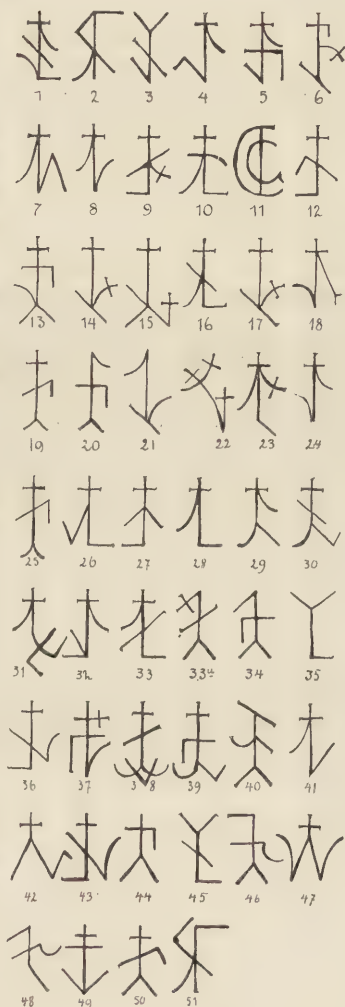 1 2 3 4 5 6
7 8 9 10 11 12
13 14 15 16 17 18
19 20 21 22 23 24
25 26 27 28 29 30
31 32 33 33a 34 35
36 37 38 39 40 41
42 43 44 45 46 47
48 49 50 51